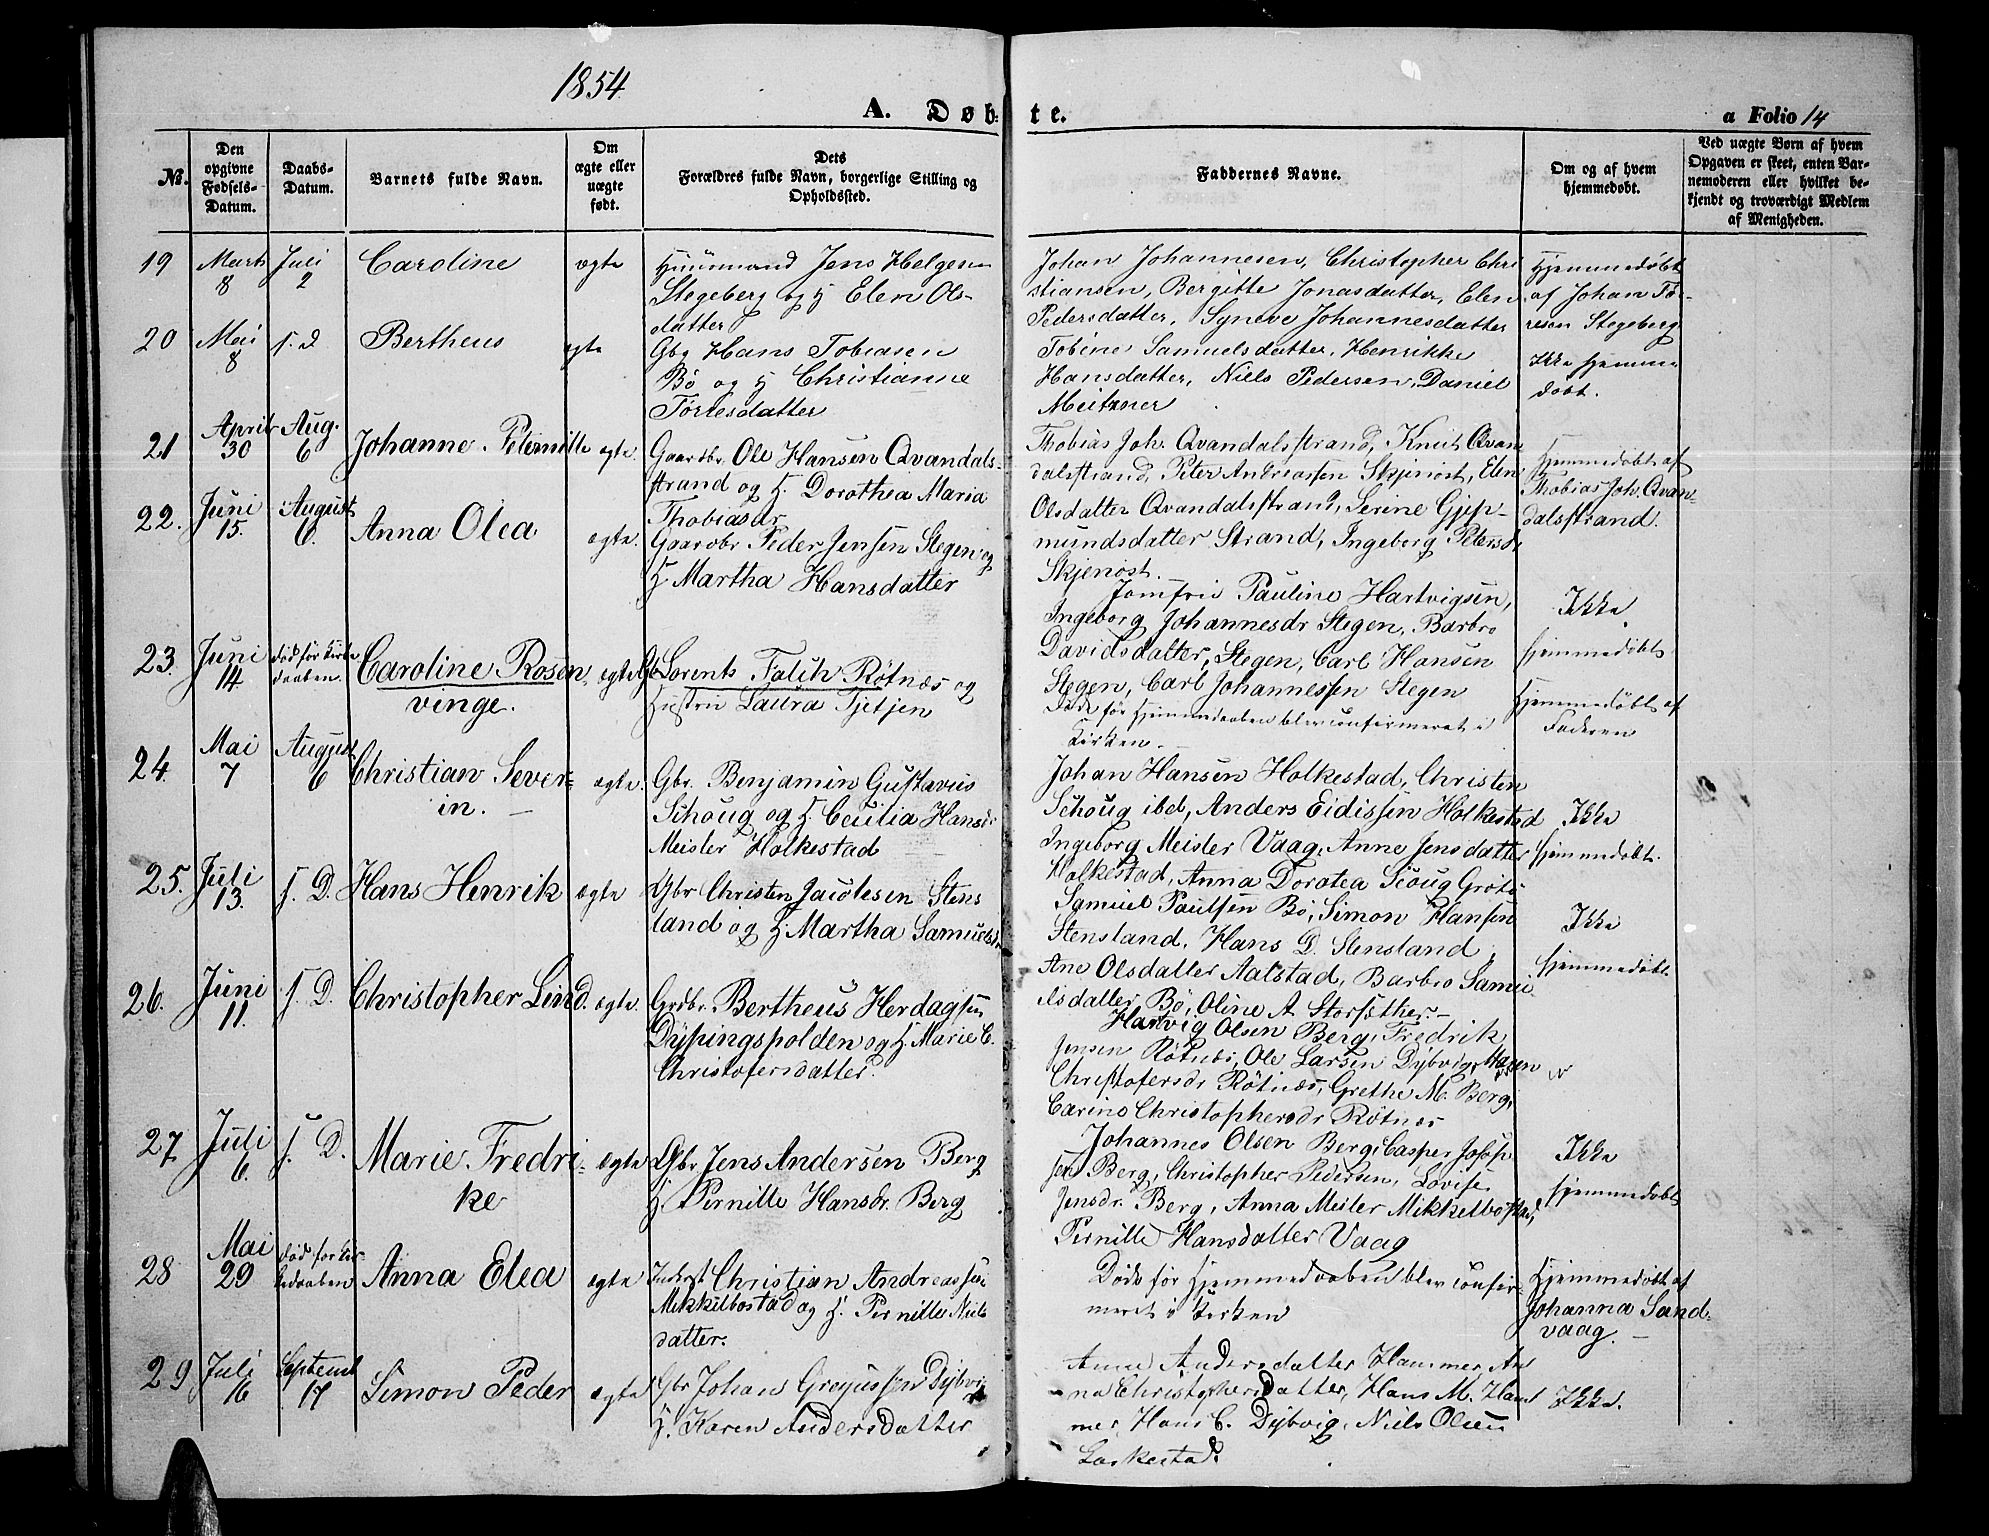 1854
A. Døb-
te.
a Folio 14
No.
Den opgivne Fødsels-Datum.
Daabs-Datum.
Barnets fulde Navn.
Om ægte eller uægte født.
Dets Forældres fulde Navn, borgerlige Stilling og Opholdssted.
Faddernes Navne.
Om og af hvem hjemmedøbt.
Ved uægte Børn af hvem Opgaven er skeet, enten Barnemoderen eller hvilket bekjendt og troværdigt Medlem af Menigheden.
19 Marts 8 Juli 2 Caroline ægte
Huusmand Jens Helgesen
Stegeberg og H Elen Ols-
datter
Johan Johannesen, Christopher Chri
stiansen, Bergitte Jonasdatter, Elen
Pedersdatter, Syneve Johannesdatter
Hjemmedøbt
af Johan To-
resen Stegeberg
20 Mai 8 s. d Bertheus ægte
Gbr Hans Tobiasen
Bø og H Christianne
Tørlesdatter
Tobine Samuelsdatter, Henrikke
Hansdatter, Niels Pedersen, Daniel
Meitzner
Ikke hjemme
døbt.
21 April 30 Aug. 6 Johanne Peternille ægte.
Gaardbr. Ole Hansen Qvandals-
strand og H. Dorothea Maria
Thobiasdr
Thobias Joh. Qvandalsstrand, Knut Qvan
dalsstrand, Peter Andreassen Skjenost, Elen
Olsdatter Qvandalsstrand, Serine Gjep-
mundsdatter Strand, Ingeborg Petersdr
Skjenost.
Hjemmedøbt af
Thobias Joh. Qvan-
dalsstrand.
22. Juni 15. August 6. Anna Olea ægte.
Gaardbr Peder Jensen Stegen og
H Martha Hansdatter
Jomfru Pauline Hartvigsen,
Ingeborg Johannesdr Stegen, Barbro
Davidsdatter, Stegen, Carl Hansen
Stegen, Carl Johannessen Stegen
Ikke
hjemmedøbt
23. Juni 14 død før Kirke
daaben. Caroline Rosen-
vinge. ægte
Gb Lorents Falch Røtnæs og
Hustru Laura Tjetjen
Døde før Hjemmedaaben blev confirmeret i
Kirken.
Hjemmedøbt af
Faderen
24. Mai 7 August 6 Christian Sever-
in. ægte.
Gbr. Benjamin Gustavus
Schoug og H Cecilia Hansdr
Meisler Holkestad
Johan Hansen Holkestad, Christen
Schoug ibd, Anders Eidissen Holkestad
Ingeborg Meisler Vaag, Anne Jensdatter
Holkestad, Anna Dorotea Scoug Grøtø
Ikke
hjemmedøbt.
25. Juli 13. s. D. Hans Henrik ægte
Gbr Christen Jacobsen Stens
land og H Martha Samuelsdr
Samuel Paulsen Bø, Simon Hansen
Stensland, Hans D. Stensland,
Ane Olsdatter Aalstad, Barbro Samu
elsdatter Bø, Oline A Storsether.
Ikke
hjemmedøbt
26. Juni 11. s. D. Christopher Lind. ægte.
Grdbr. Bertheus Herdagsen
Dypingspolden og H Marie C.
Christofersdatter.
Hartvig Olsen Berg, Fredrik
Jensen Røtnes, Ole Larsen Dybvig, Maren
Christofersdr Røtnæs, Grethe M. Berg,
Carine Christophersdr Røtnes
27 Juli 6. s. D. Marie Fredri-
ke ægte
Gbr. Jens Andersen Berg
H Pernille Hansdr. Berg
Johannes Olsen Berg, Casper Josep
sen Berg, Christopher Pedersen, Lovise
Jensdr. Berg, Anna Meisler Mikkelbostad,
Pernille Hansdatter Vaag
Ikke
hjemmedøbt
28 Mai 29 død for Kir-
kedaaben Anna Elea ægte
Inderst Christian Andreassen
Mikkelbostad og H. Pernille Niels
datter.
Døde før Hjemmedaaben blev confir-
meret i Kirken
Hjemmedøbt af
Johanna Sand-
vaag.
29 Juli 16 Septemb 17 Simon Peder ægte
Gbr Johan Gregussen Dybvi
H. Karen Andersdatter
Anne Andersdatter Hammer, An
na Christophersdatter, Hans M. Ham
mer, Hans C. Dybvig, Niels Olsen
Laskestad.
Ikke.